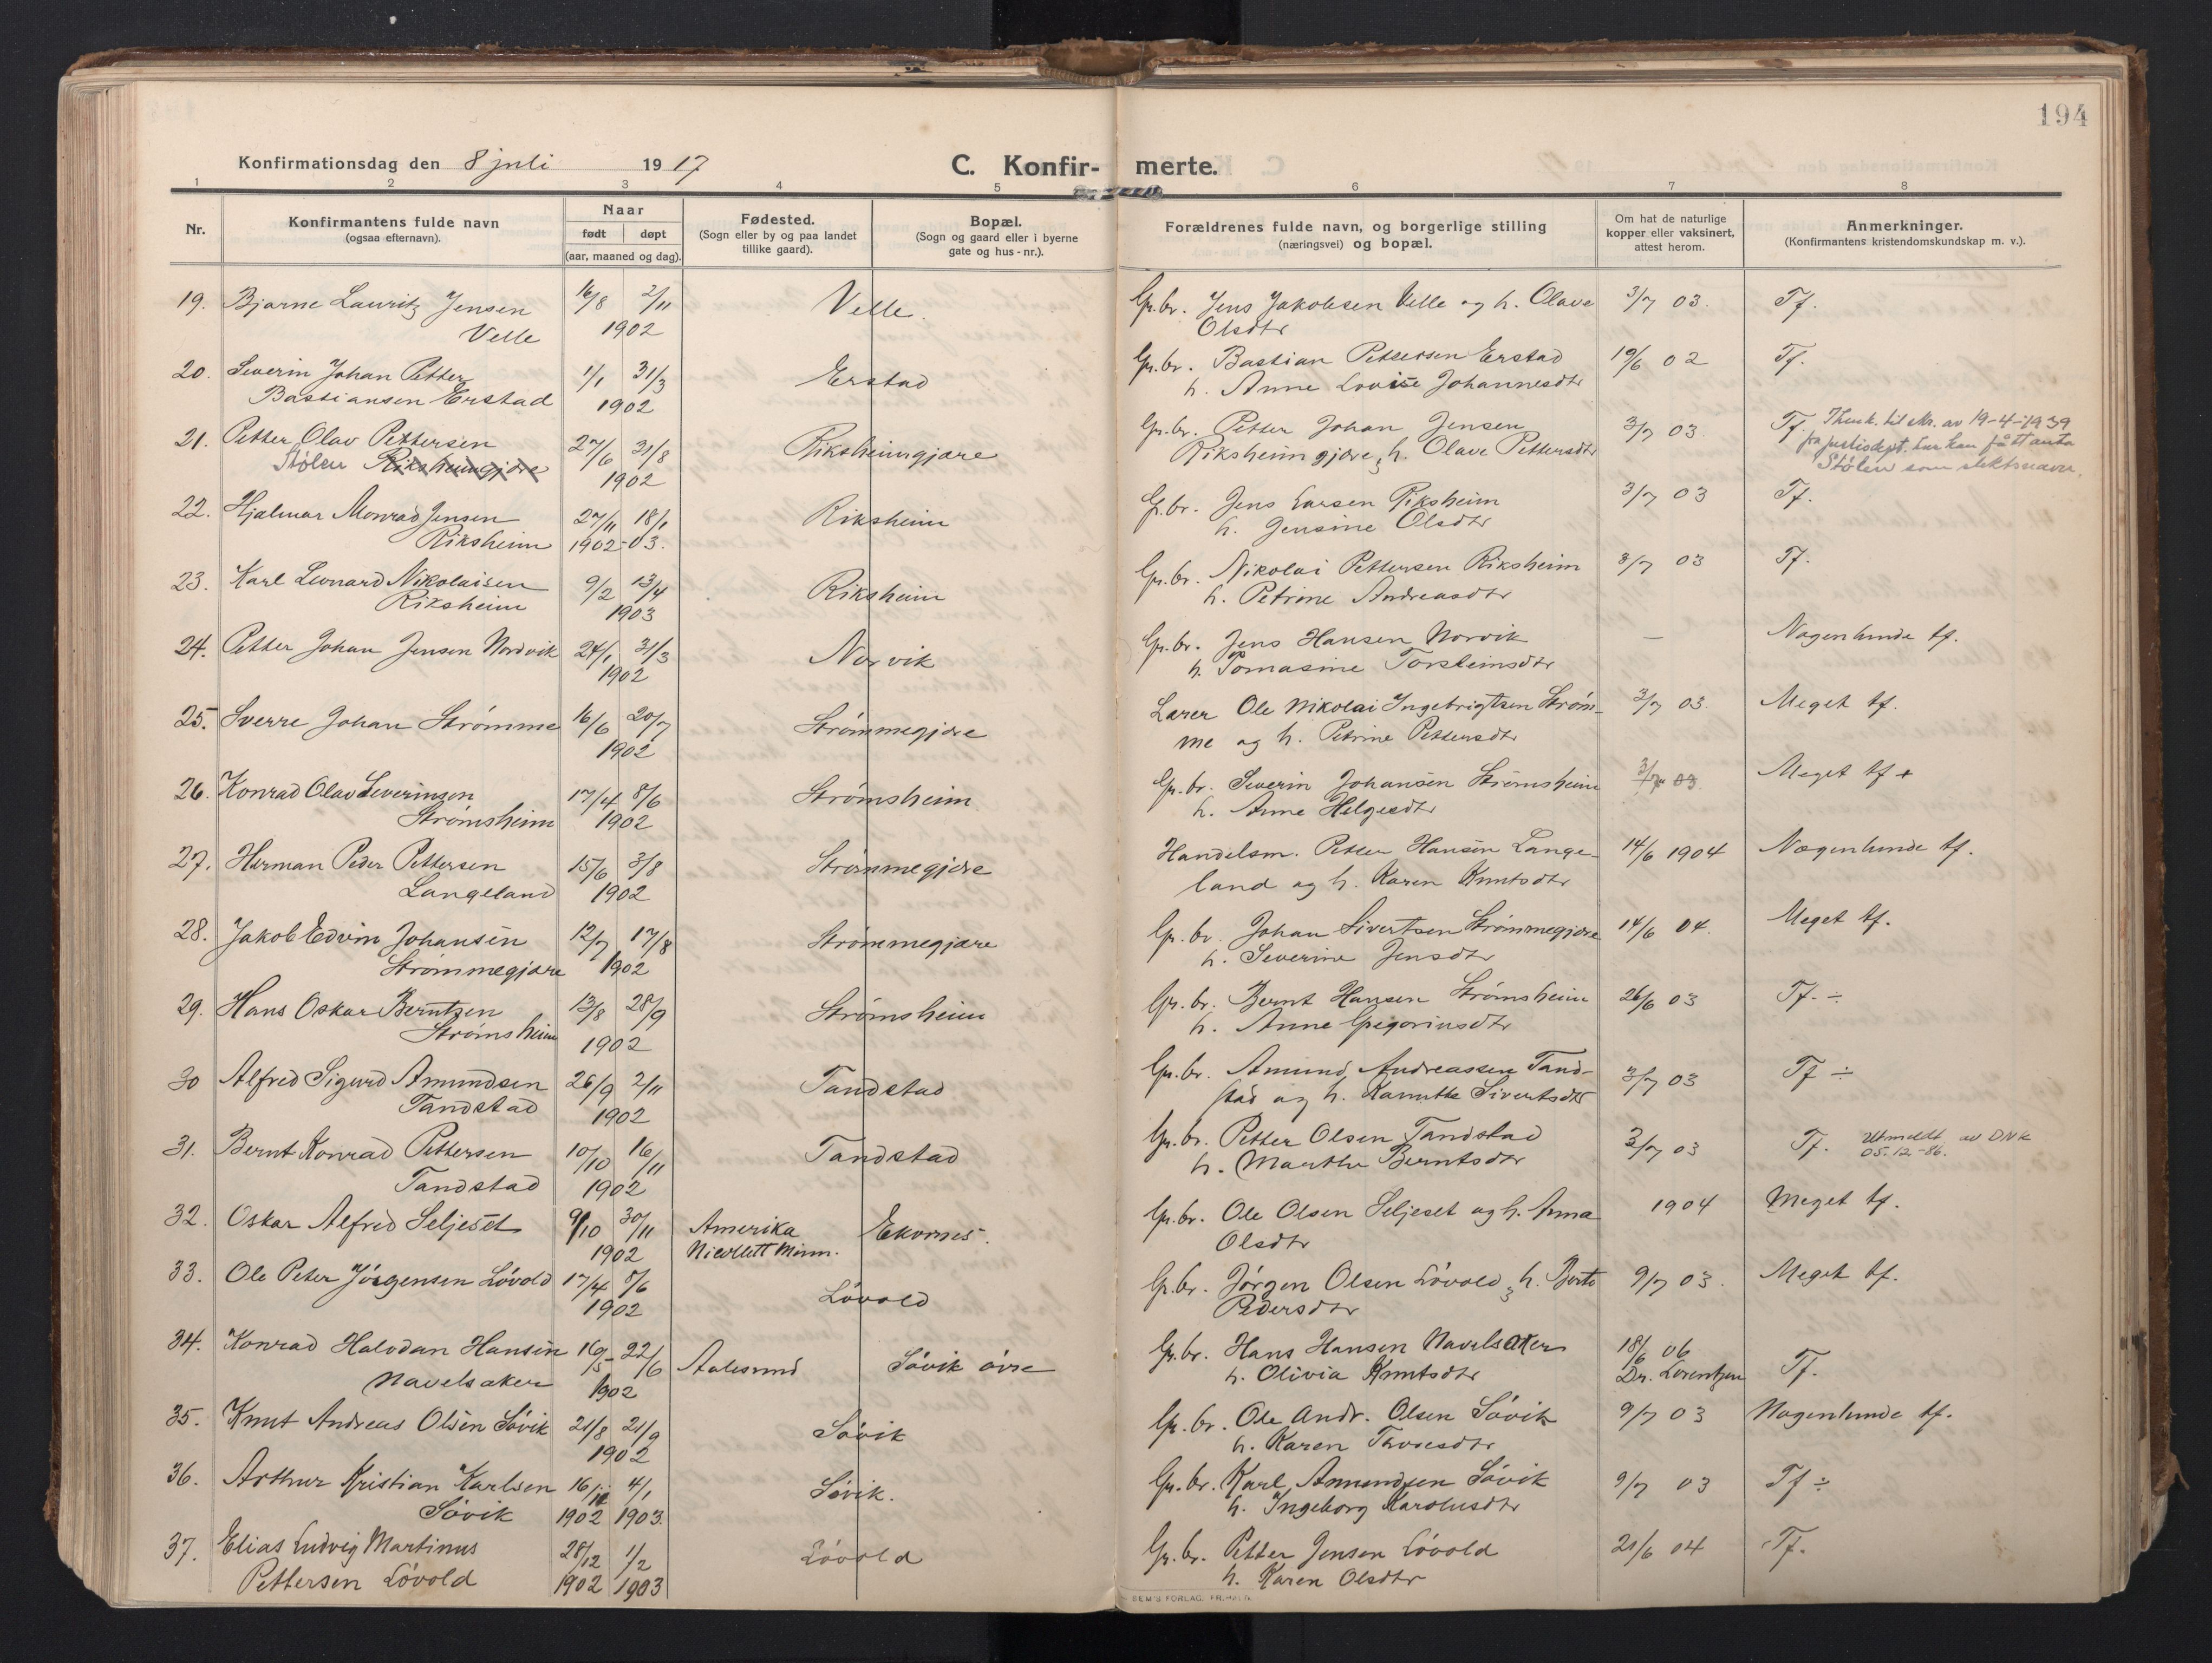 194
Konfirmationsdag den 8 juli 1917
C. Konfirmerte.
1 2 3 4 5 6 7 8
Nr.
Konfirmantens fulde navn
(ogsaa efternavn).
Naar
født døpt
(aar, maaned og dag).
Fødested.
(Sogn eller by og paa landet
tillike gaard).
Bopæl.
(Sogn og gaard eller i byerne
gate og hus-nr.).
Forældrenes fulde navn, og borgerlige stilling
(næringsvei) og bopæl.
Om hat de naturlige
kopper eller vaksinert,
attest herom.
Anmerkninger.
(Konfirmantens kristendomskundskap m. v.).
19. Bjarne Lauritz Jensen 16/8 2/11 Velle. Gr.br. Jens Jakobsen Velle og h. Olave 3/7 03. Tf.
Velle 1902 Olsdtr
20. Severin Johan Petter 1/1 31/3 Erstad Gr.br. Bastian Pettersen Erstad 19/6 02 Tf.
Bastiansen Erstad 1902 h. Anne Lovise Johannesdtr
21. Petter Olav Pettersen 27/6 31/8 Riksheimgjære Gr.br. Petter Johan Jensen 3/7 03. Tf. Ihensk. til skr. av 19-4-1939
Stølen Riksheimgjære 1902 Riksheimgjære, h. Olave Pettersdtr fra justisdept. har han fått anta
Stølen som slektsnavn.
22. Hjalmar Monrad Jensen 27/11 18/1 Riksheim Gr.br. Jens Larsen Riksheim 3/7 03 Tf.
Riksheim 1902-03. h. Jensine Olsdtr
23. Karl Leonard Nikolaisen 9/2 13/4 Riksheim Gr.br. Nikolai Pettersen Riksheim 3/7 03 Tf.
Riksheim 1903 h. Petrine Andreasdtr
24. Petter Johan Jensen Nordvik 24/1 31/3 Norvik Gr.br. Jens Hansen Norvik — Nogenlunde tf.
1902 h. Tomasine Torsteinsdtr
25. Sverre Johan Strømme 16/6 20/7 Strømmegjære Lærer Ole Nikolai Ingebrigtsen Strøm- 3/7 03. Meget tf.
1902 me og h. Petrine Pettersdtr
26. Konrad Olav Severinsen 17/4 8/6 Strømsheim Gr.br. Severin Johansen Strømsheim 3/7 03 Meget tf +
Strømsheim 1902 h. Anne Helgesdtr
27. Herman Peder Pettersen 15/6 3/8 Strømmegjære Handelsm. Petter Hansen Lange- 14/6 1904 Nogenlunde tf.
Langeland 1902 land og h. Karen Knutsdtr
28. Jakob Edvin Johansen 12/7 17/8 Strømmegjære Gr.br. Johan Sivertsen Strømmegjære 14/6 04. Meget tf.
Strømmegjære 1902 h. Severine Jensdtr
29. Hans Oskar Berntsen 13/8 28/9 Strømsheim Gr.br. Bernt Hansen Strømsheim 26/6 03 Tf. ÷
Strømsheim 1902 h. Anne Gregoriusdtr
30 Alfred Sigurd Amundsen 26/9 2/11 Tandstad Gr.br. Amund Andreassen Tand- 3/7 03 Tf ÷
Tandstad 1902 stad og h. Kanutte Sivertsdtr
31. Bernt Konrad Pettersen 10/10 16/11 Tandstad Gr.br. Petter Olsen Tandstad 3/7 03 Tf. Utmeldt av DNK
Tandstad 1902 h. Marthe Berntsdtr 05.12-86.
32. Oskar Alfred Seljeset 9/10 30/11 Amerika Ekornes. Gr.br. Ole Olsen Seljeset og h. Anna 1904 Meget tf.
1902 Nicollett Minn. Olsdtr
33. Ole Peter Jørgensen Løvold 17/4 8/6 Løvold Gr.br. Jørgen Olsen Løvold, h. Berte 9/7 03. Meget tf.
1902 Pedersdtr
34. Konrad Halvdan Hansen 16/5 22/6 Aalesund Søvik øvre Gr.br. Hans Hansen Navelsaker 18/6 06 Tf.
Navelsaker 1902 h. Olivia Knutsdtr Dr. Lorentzen
35. Knut Andreas Olsen Søvik 21/8 21/9 Søvik Gr.br. Ole Andr. Olsen Søvik 9/7 03 Nogenlunde tf.
1902 h. Karen Thoresdtr
36. Arthur Kristian Karlsen 16/11 4/1 Søvik. Gr.br. Karl Amundsen Søvik 9/7 03 Tf ÷
Søvik 1902 1903. h. Ingeborg Karolusdtr
37. Elias Ludvig Martinus 28/12 1/2 Løvold Gr.br. Petter Jensen Løvold 21/6 04 Tf.
Pettersen Løvold 1902 1903 h. Karen Olsdtr
SEM'S FORLAG,